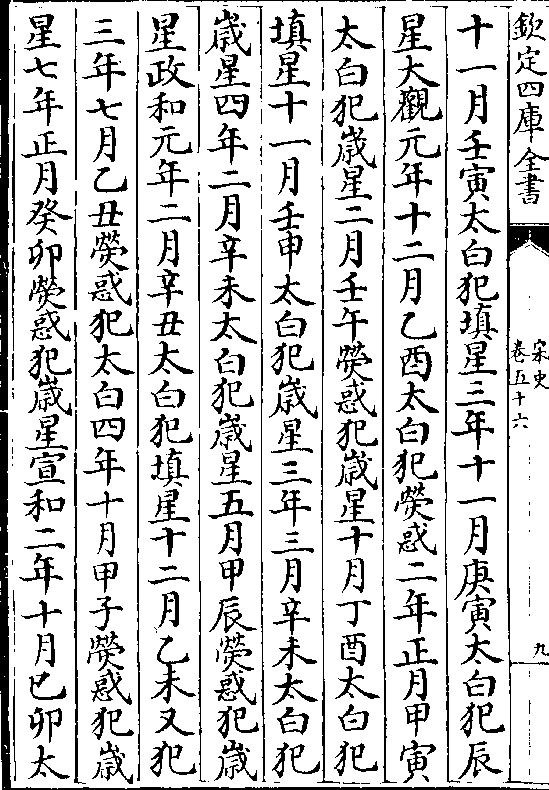 欽定四庫全書
宋史
卷五十六
九
十一月壬寅太白犯填星三年十一月庚寅太白犯辰
星大觀元年十二月乙酉太白犯熒惑二年正月甲寅
太白犯歳星二月壬午熒惑犯歳星十月丁酉太白犯
填星十一月壬申太白犯歳星三年三月辛未太白犯
歳星四年二月辛未太白犯歳星五月甲辰熒惑犯歳
星政和元年二月辛丑太白犯填星十二月乙未又犯
三年七月乙丑熒惑犯太白四年十月甲子熒惑犯歳
星七年正月癸卯熒惑犯歳星宣和二年十月己卯太